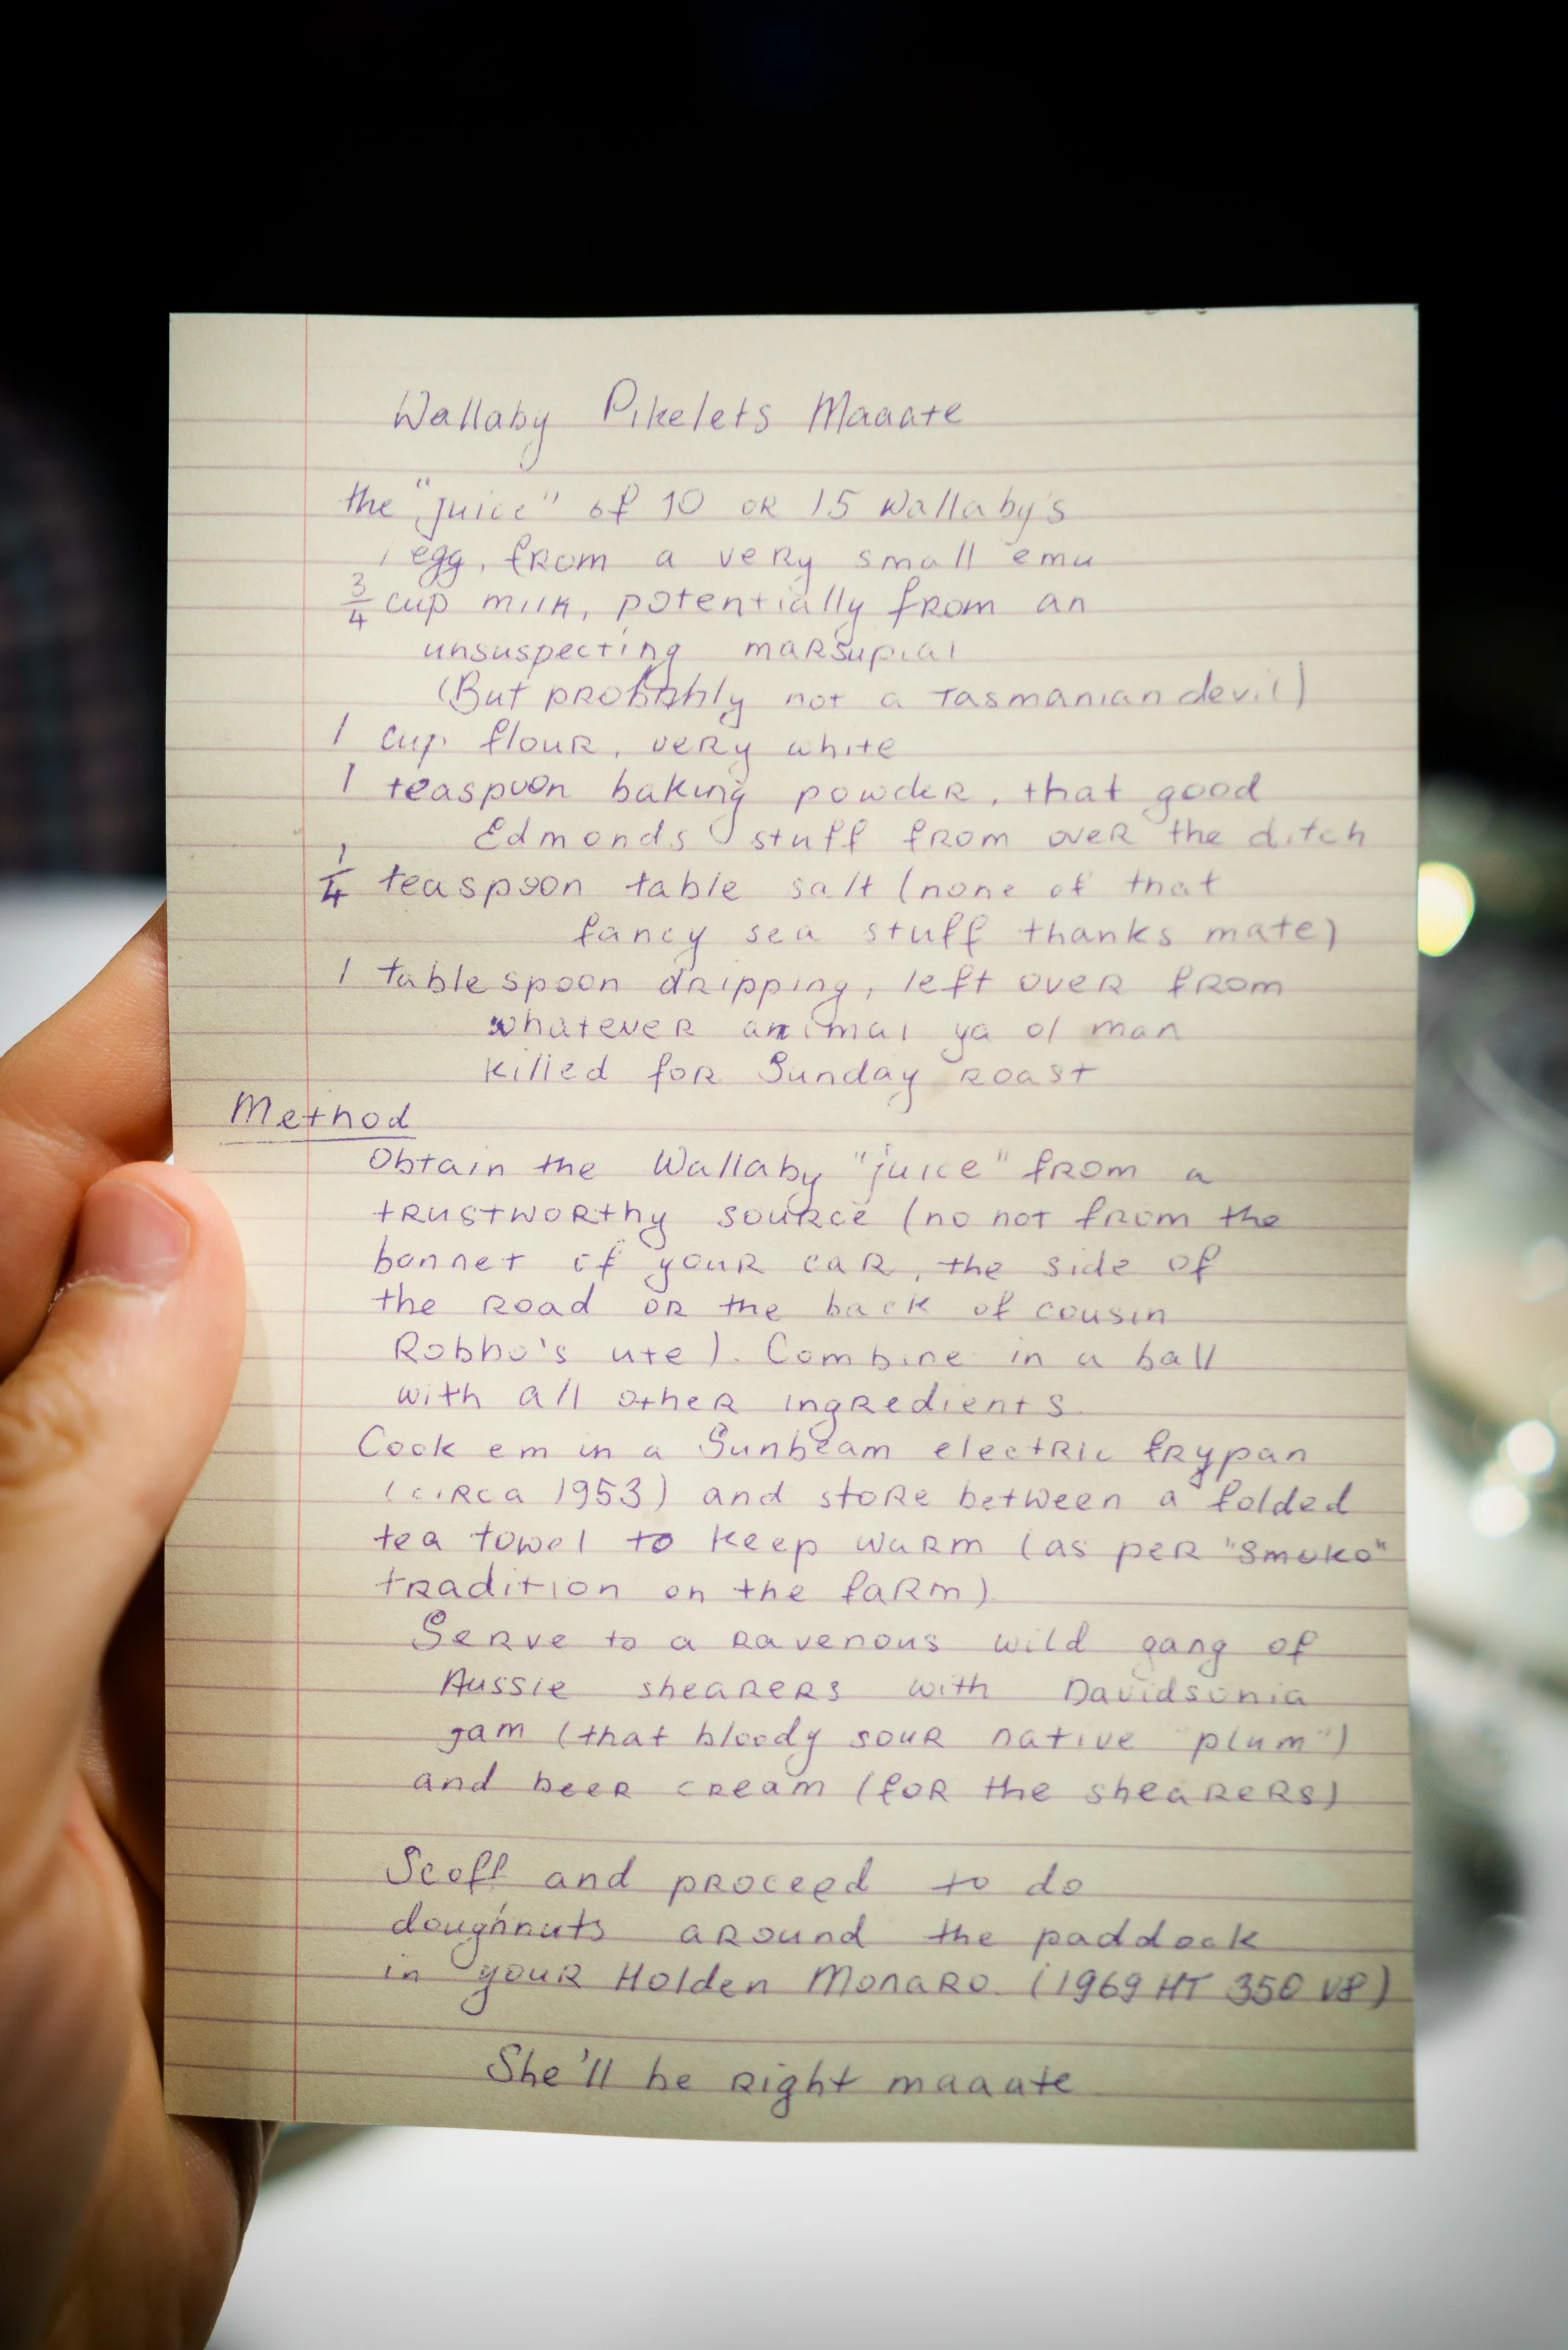 Wallaby Pikelets Maaate
the "juice" of 10 or 15 Wallaby's
1 egg, from a very small emu
3/4 cup milk, potentially from an
unsuspecting marsupial
(But probably not a Tasmanian devil)
1 cup flour, very white
1 teaspoon baking powder, that good
Edmonds stuff from over the ditch
1/4 teaspoon table salt (none of that
fancy sea stuff thanks mate)
1 tablespoon dripping, left over from
whatever animal ya ol man
killed for Sunday roast
Method
Obtain the Wallaby "juice" from a
trustworthy source (no not from the
bonnet of your car, the side of
the road or the back of cousin
Robbo's ute). Combine in a ball
with all other ingredients
Cook em in a Sunbeam electric frypan
(circa 1953) and store between a folded
tea towel to keep warm (as per "smoko"
tradition on the farm)
Serve to a ravenous wild gang of
Aussie shearers with Davidsonia
jam (that bloody sour native "plum")
and beer cream (for the shearers)
Scoff and proceed to do
doughnuts around the paddock
in your Holden Monaro (1969 HT 350 V8)
She'll be right maaate